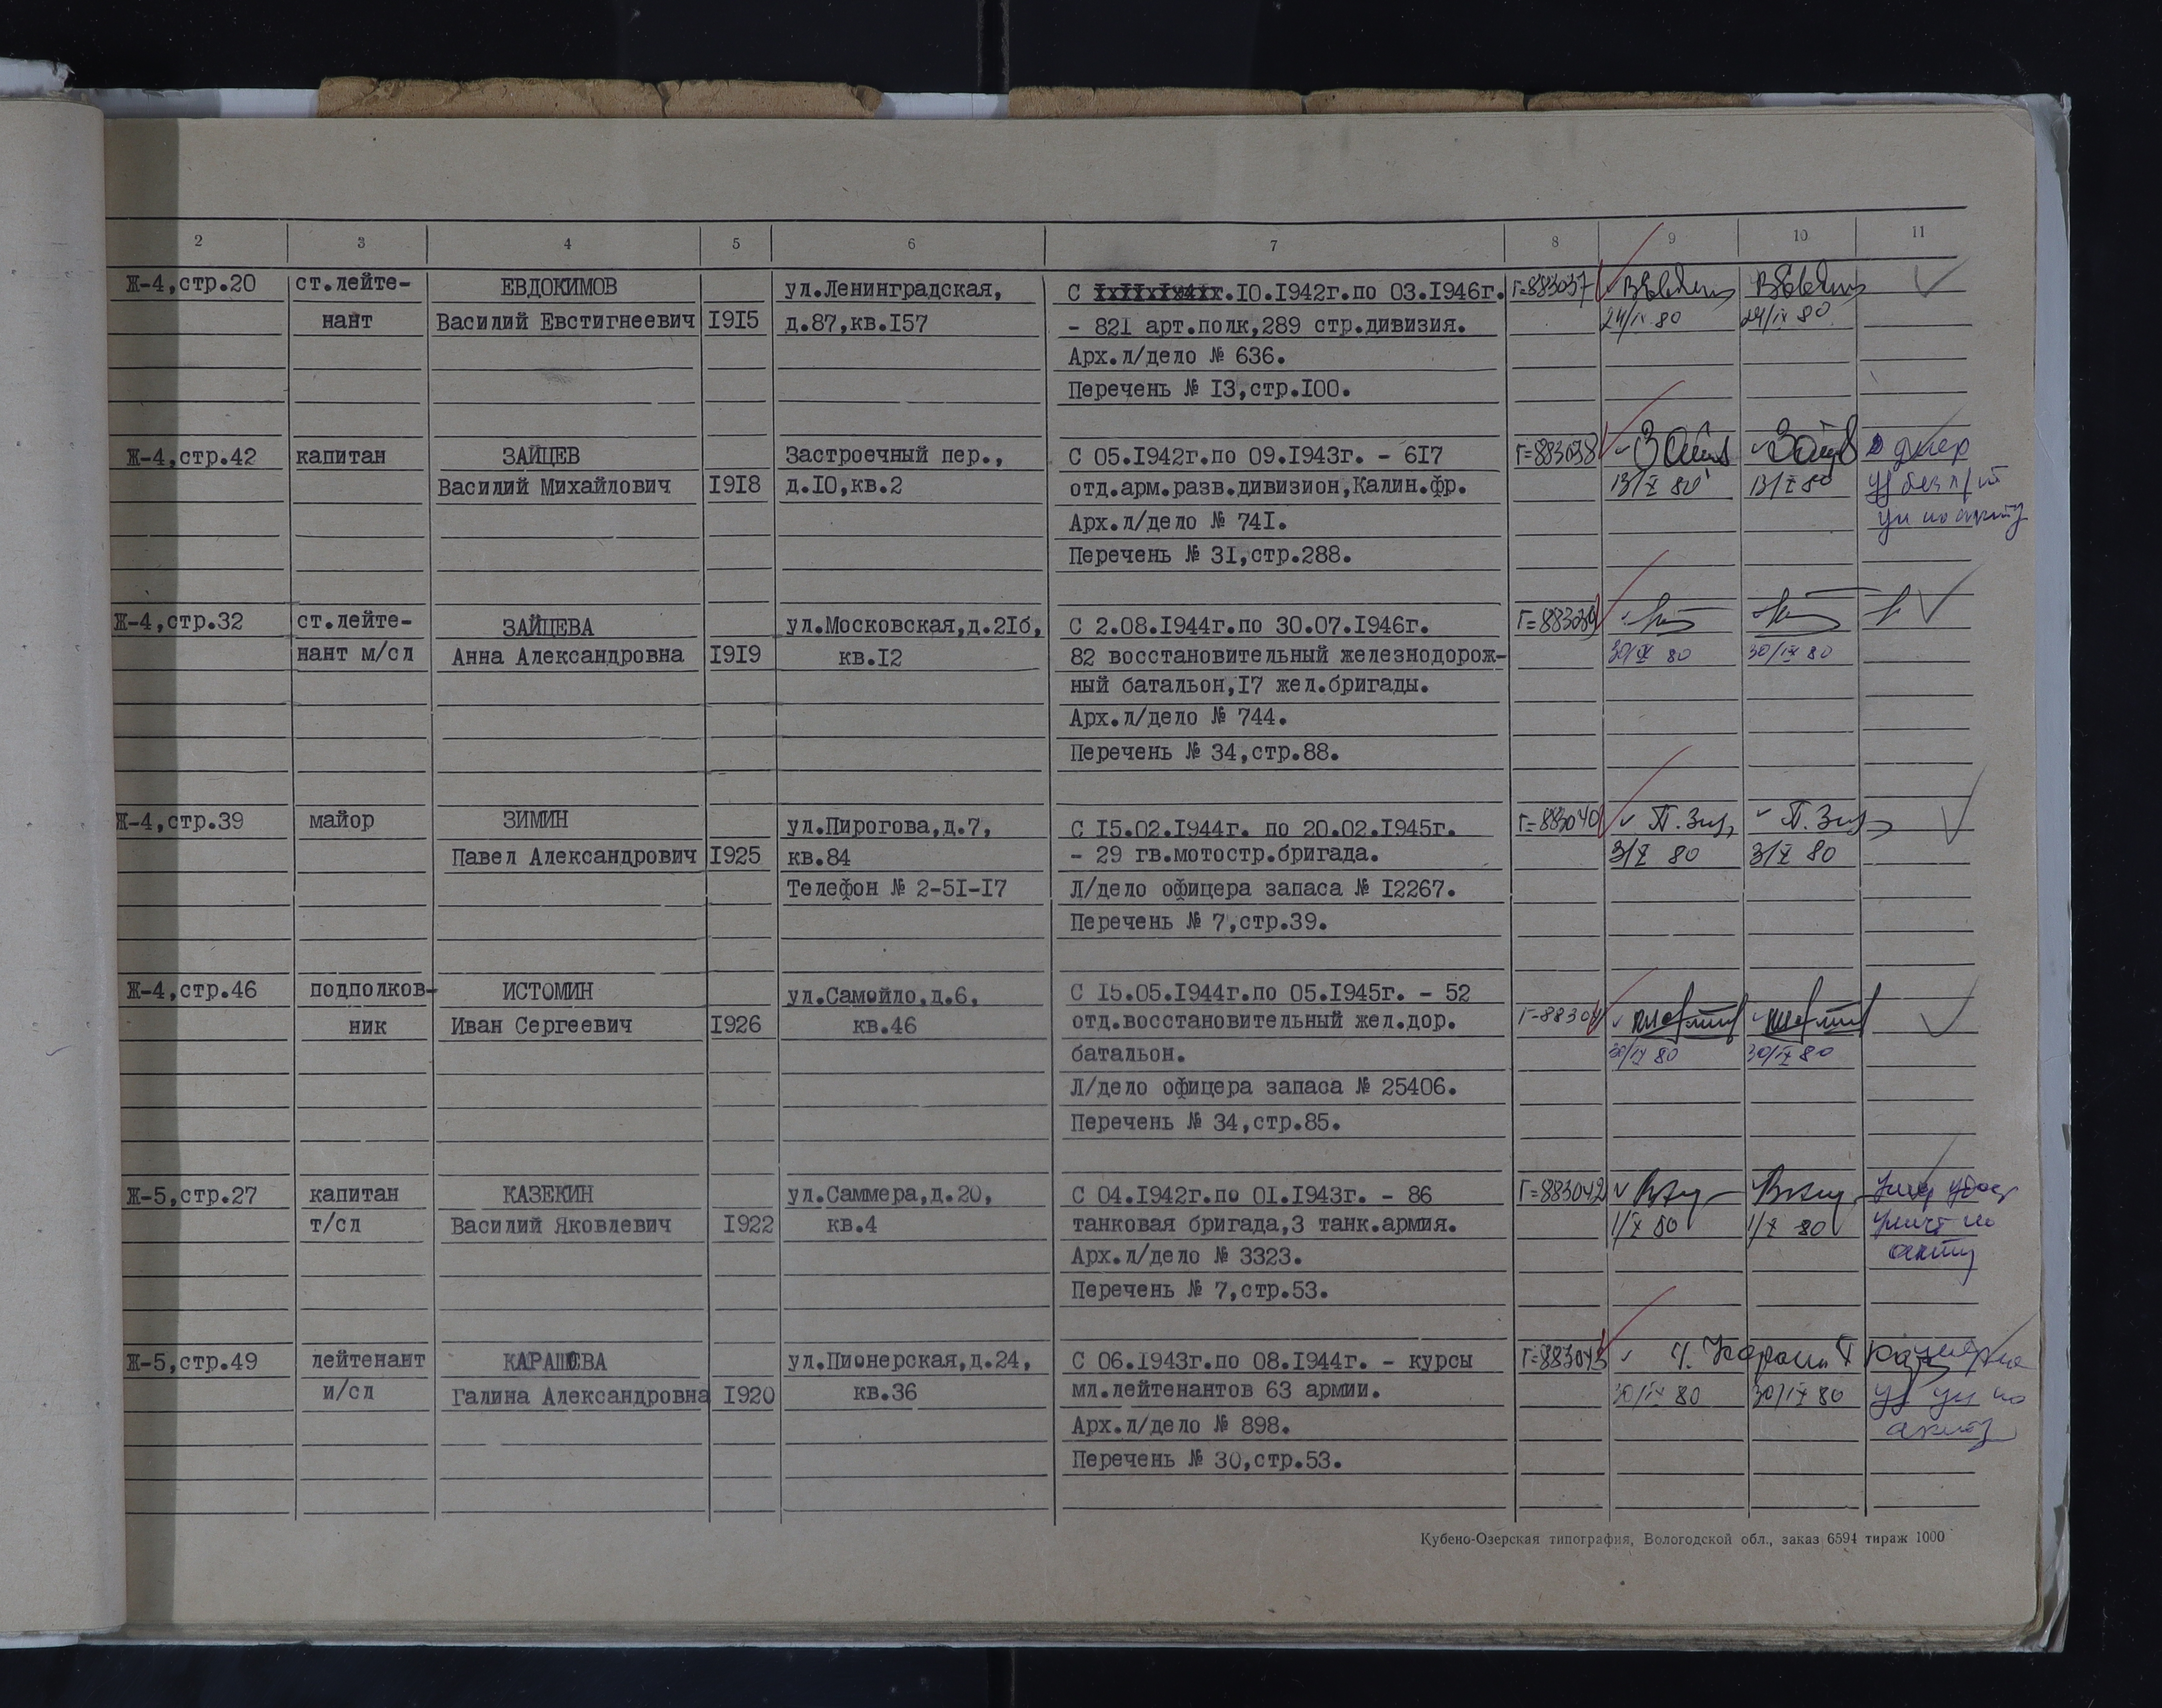 2 3 4 5 6 7 8 9 10 11
Ж-4,стр.20 ст.лейте- ЕВДОКИМОВ ул.Ленинградская, С .10.1942г.по 03.1946г. Г=883037
нант Василий Евстигнеевич 1915 д.87,кв.157 - 821 арт.полк,289 стр.дивизия. 24/IX 80 24/IX 80
Арх.л/дело № 636.
Перечень № 13,стр.100.
Ж-4,стр.42 капитан ЗАЙЦЕВ Застроечный пер., С 05.1942г.по 09.1943г. - 617 Г=883038
Василий Михайлович 1918 д.10,кв.2 отд.арм.разв.дивизион,Калин.фр. 13/X 80 13/X 80
Арх.л/дело № 741.
Перечень № 31,стр.288.
Ж-4,стр.32 ст.лейте- ЗАЙЦЕВА ул.Московская,д.21б, С 2.08.1944г.по 30.07.1946г. Г=883039
нант м/сл Анна Александровна 1919 кв.12 82 восстановительный железнодорож- 30/IX 80 30/IX 80
ный батальон,17 жел.бригады.
Арх.л/дело № 744.
Перечень № 34,стр.88.
Ж-4,стр.39 майор ЗИМИН ул.Пирогова,д.7, С 15.02.1944г. по 20.02.1945г. Г=883040
Павел Александрович 1925 кв.84 - 29 гв.мотостр.бригада. 3/X 80 3/X 80
Телефон № 2-51-17 Л/дело офицера запаса № 12267.
Перечень № 7,стр.39.
Ж-4,стр.46 подполков- ИСТОМИН ул.Самойло,д.6, С 15.05.1944г.по 05.1945г. - 52
ник Иван Сергеевич 1926 кв.46 отд.восстановительный жел.дор. 30/IX 80 30/IX 80
батальон.
Л/дело офицера запаса № 25406.
Перечень № 34,стр.85.
Ж-5,стр.27 капитан КАЗЕКИН ул.Саммера,д.20, С 04.1942г.по 01.1943г. - 86 Г=883042
т/сл Василий Яковлевич 1922 кв.4 танковая бригада,3 танк.армия. 1/X 80 1/X 80
Арх.л/дело № 3323. акту
Перечень № 7,стр.53.
Ж-5,стр.49 лейтенант КАРАШОВА ул.Пионерская,д.24, С 06.1943г.по 08.1944г. - курсы Г=883043
и/сл Галина Александровна 1920 кв.36 мл.лейтенантов 63 армии. 30/IX 80 30/IX 80
Арх.л/дело № 898. акту
Перечень № 30,стр.53.
Кубено-Озерская типография, Вологодской обл., заказ 6594 тираж 1000